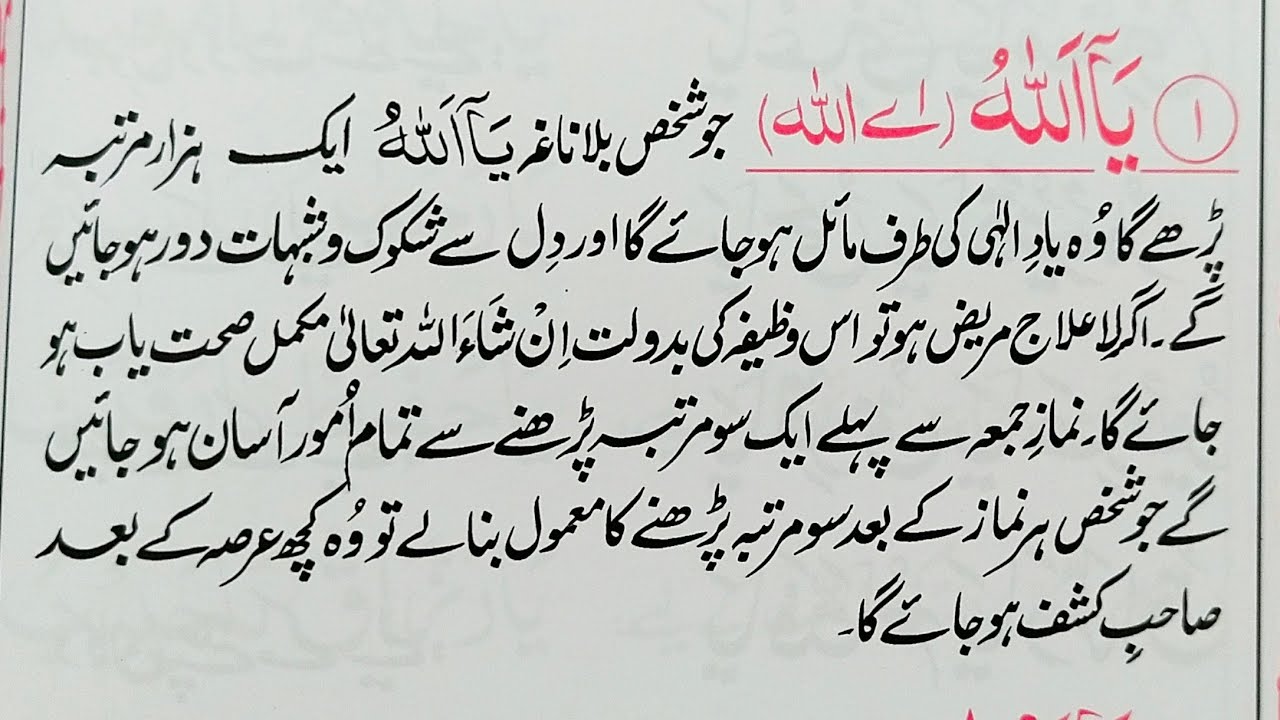 ۱ یَآ اَللّٰہُ (اے اللہ) جو شخص بلا ناغہ یَآ اَللّٰہُ ایک ہزار مرتبہ
پڑھے گا وُہ یادِ الٰہی کی طرف مائل ہو جائے گا اور دِل سے شکوک و شبہات دور ہو جائیں
گے۔ اگر لا علاج مریض ہو تو اس وظیفہ کی بدولت اِنْ شَاءَ اللہ تعالیٰ مکمل صحت یاب ہو
جائے گا۔ نمازِ جمعہ سے پہلے ایک سو مرتبہ پڑھنے سے تمام اُمور آسان ہو جائیں
گے جو شخص ہر نماز کے بعد سو مرتبہ پڑھنے کا معمول بنالے تو وُہ کچھ عرصہ کے بعد
صاحبِ کشف ہو جائے گا۔